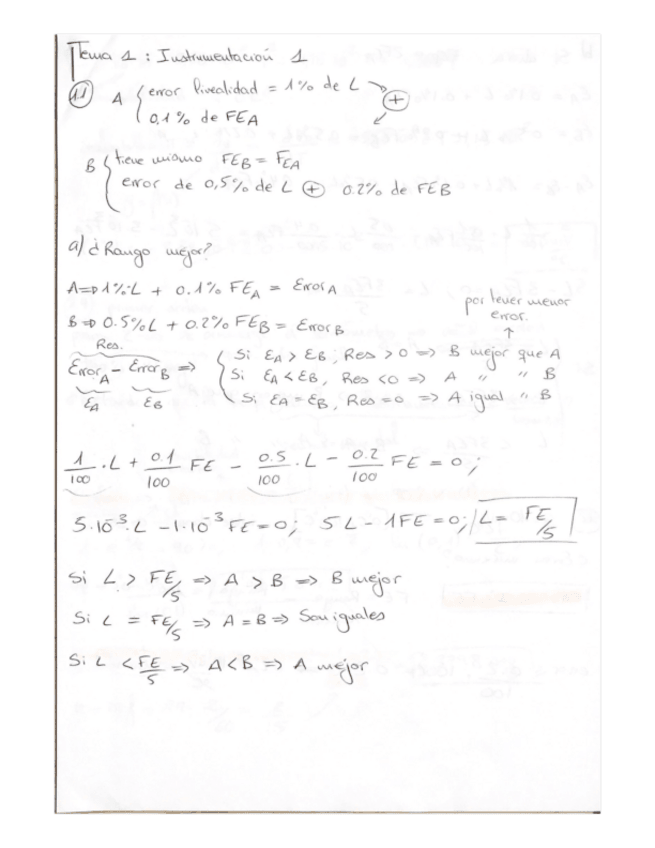 Tema 1 : Instrumentación 1
1.1 A { error linealidad = 1% de L
0,1% de FEA ⊕
B { tiene mismo FEB = FEA
error de 0,5% de L ⊕ 0.2% de FEB
a) ¿Rango mejor?
A => 1%·L + 0.1% FEA = ErrorA
B => 0.5%L + 0.2% FEB = ErrorB
por tener menor error.
Res.
ErrorA - ErrorB => { Si εA > εB, Res > 0 => B mejor que A
εA εB
Si εA < εB, Res < 0 => A " " B
Si εA = εB, Res = 0 => A igual " B
1/100 · L + 0.1/100 FE - 0.5/100 · L - 0.2/100 FE = 0 ;
5·10⁻³·L - 1·10⁻³ FE = 0; 5L - 1FE = 0; L = FE/5
Si L > FE/5 => A > B => B mejor
Si L = FE/5 => A = B => Son iguales
Si L < FE/5 => A < B => A mejor